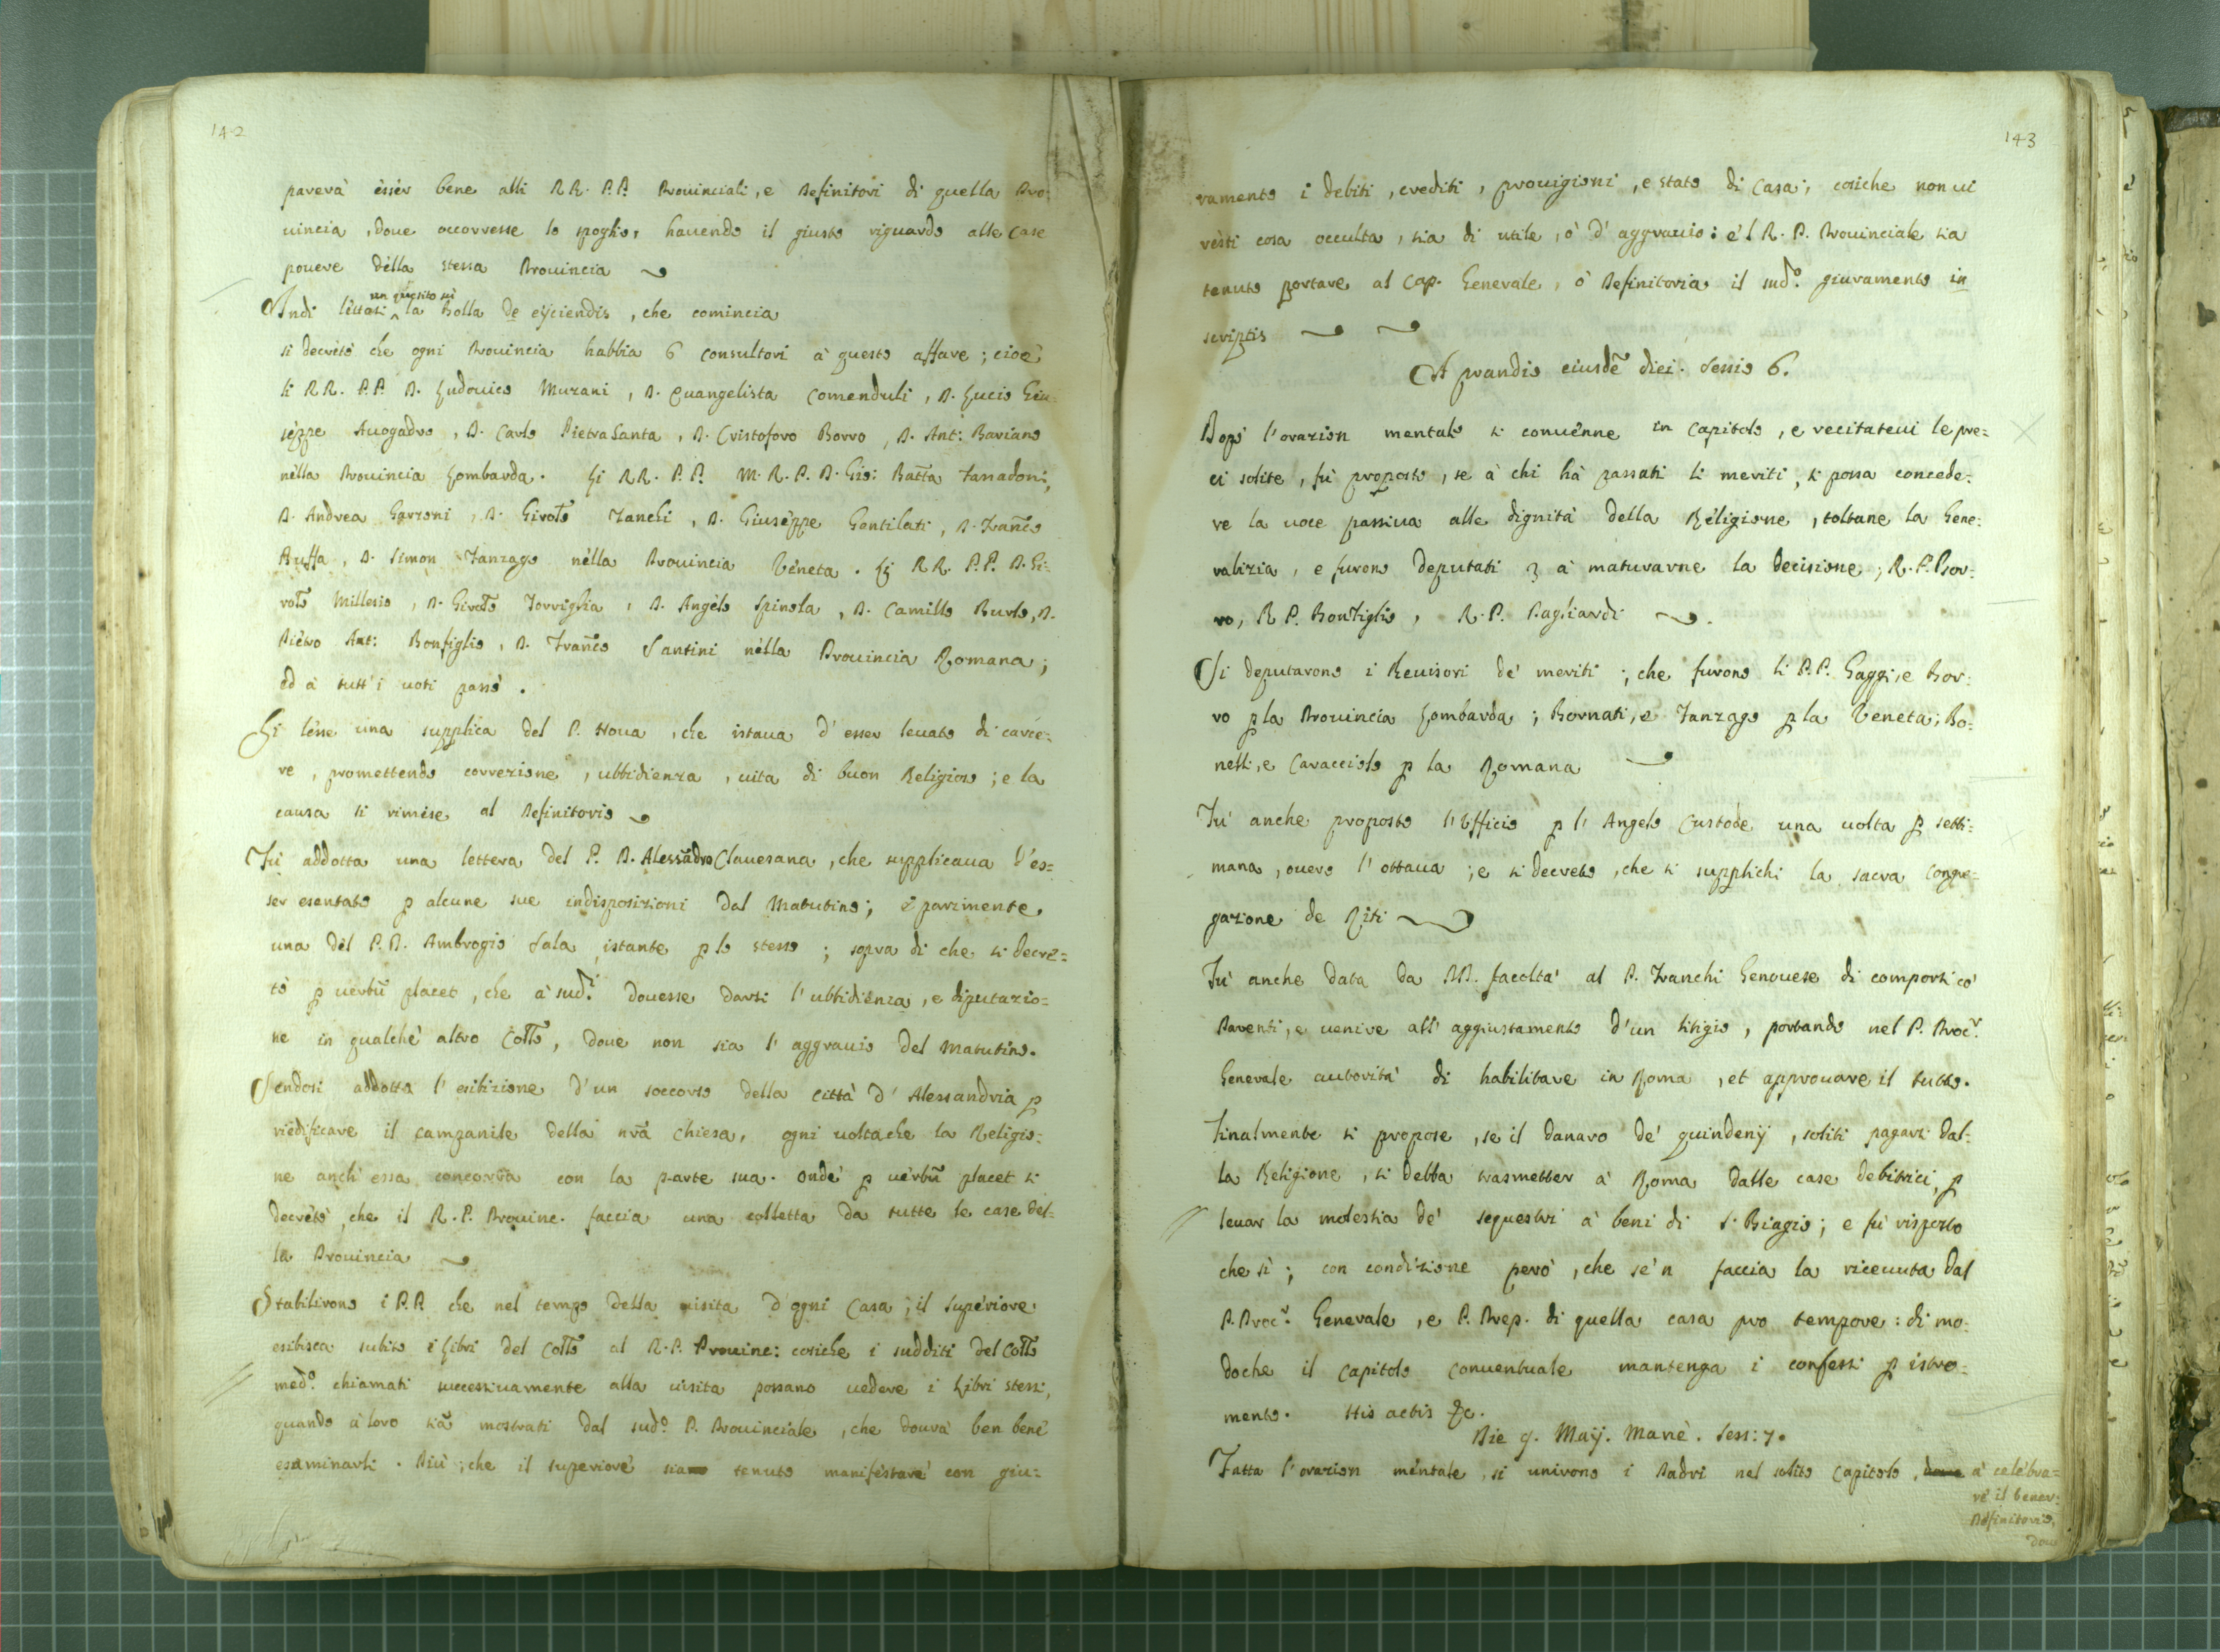 142
parerà èsser bene alli RR. P.P. Prouinciali, e Definitori di quella Pro:
uincia, doue occorresse lo spoglio, hauendo il giusto riguardo alle Case
pouere dèlla stessa Prouincia
Indi lèttasi un quesito sù la Bolla de eijciendis, che comincia
si decretò che ogni Prouincia habbia 6 consultori à questo affare; cioè
li RR. P.P. D. Ludouico Murani, D. Euangelista Comenduli, D. Lucio Giu:
sèppe Auogadro, D. Carlo Pietra Santa, D. Cristoforo Borro, D. Ant: Bariano
nèlla Prouincia Lombarda. Li RR. P.P. M. R. P. D. Gio: Batta Tassadoni,
D. Andrea Garzoni, D. Girolo Zanchi, D. Giusèppe Gentilati, D. Franco
Ruffa, D. Simon Zanzago nèlla Prouincia Vèneta. Li RR. P.P. D. Gi:
rolo Millesio, D. Girolo Torriglia, D. Angèlo Spinola, D. Camillo Burlo, D.
Piètro Ant: Bonfiglio, D. Franco Santini nèlla Prouincia Romana;
ed à tutt'i uoti passò.
Si lèsse una supplica del P. Noua, che istaua d'esser leuato di carce:
re, promettendo correzione, ubbidienza, uita di buon Religioso; e la
causa si rimise al Definitorio
Fù addotta una lettera del P. D. Alessãdro Clauesana, che supplicaua d'es=
ser esentato p alcune sue indisposizioni dal Matutino; e parimente
una dèl P. D. Ambrogio Sala, istante p lo stesso; sopra di che si decre=
tò p uerbũ placet, che à sud.i douesse darsi l'ubbidiènza, e diputazio=
ne in qualchè altro Collo, doue non sia l'aggrauio del Matutino.
Sendosi addotta l'esibizione d'un soccorso della Città d'Alessandria p
riedificare il campanile della nrã Chiesa, ogni uolta che la Religio:
ne anch'essa concorra con la parte sua. Onde p uèrbũ placet si
decrètò, che il R. P. Prouinc. faccia una colletta da tutte le case del:
la Prouincia
Stabilirono i P.P. che nel tempo della uisita d'ogni Casa, il Supèriore
esibisca subito i Libri del Collo al R. P. Prouinc: cosiche i sudditi del Collo
med.o chiamati successiuamente alla uisita possano uedere i Libri stessi,
quando à loro siã mostrati dal sud.o P. Prouinciale, che dourà ben bene
esaminarli. Più; che il superiorè sia tenuto manifèstarè con giu:
143
ramento i debiti, crediti, prouigioni, e stato di Casa; cosiche non ui
rèsti cosa occulta, sia di utile, ò d'aggrauio: e'l R. P. Prouinciale sia
tenuto portare al Cap. Generale, ò Definitorio il sud.o giuramento in
scriptis
A prandio eiusdẽ diei. Sessio 6.
Dopò l'orazion mentale si conuènne in Capitolo, e recitateui le pre=
ci solite, fù proposto, se à chi hà passati li meriti, si possa concede:
re la uoce passiua alle dignità della Rèligione, toltane la Gene:
ralizia, e furono deputati 3 à maturarne la decisione; R. P. Bor:
ro, R P. Bonfiglio, R. P. Pagliardi.
Si deputarono i Reuisori de' meriti; che furono li P.P. Gaggi, e Bor:
ro p la Prouincia Lombarda; Bornati, e Zanzago p la Veneta; Bo:
nelli, e Caracciolo p la Romana
Fù anche proposto l'Vfficio p l'Angelo Custode una uolta p setti:
mana, ouero l'ottaua; e si decretò, che si supplichi la sacra Congre:
gazione de Riti
Fù anche data da PP. facoltà al P. Franchi Genouese di comporsi cò
Parenti, e uenire all'aggiustamento d'un litigio, portando nel P. Procr.
Generale autorità di habilitare in Roma, et approuare il tutto.
Finalmente si propose, se il danaro de' quindenij, soliti pagarsi dal:
la Religione, si debba trasmetter à Roma dalle case debitrici, p
leuar la molestia de' sequestri à beni di S. Biagio; e fù risposto
che sì; con condizione però, che se'n faccia la riceuuta dal
P. Procr. Generale, e P. Prep. di quella casa pro tempore: di mo:
doche il Capitolo Conuentuale mantenga i confessi p istro:
mento. His actis &c.
Die 9. Maij. Manè. Sess: 7.
Fatta l'orazion mèntale, si unirono i Padri nel solito Capitolo, à celèbra=
re il bener:
Definitorio,
doue